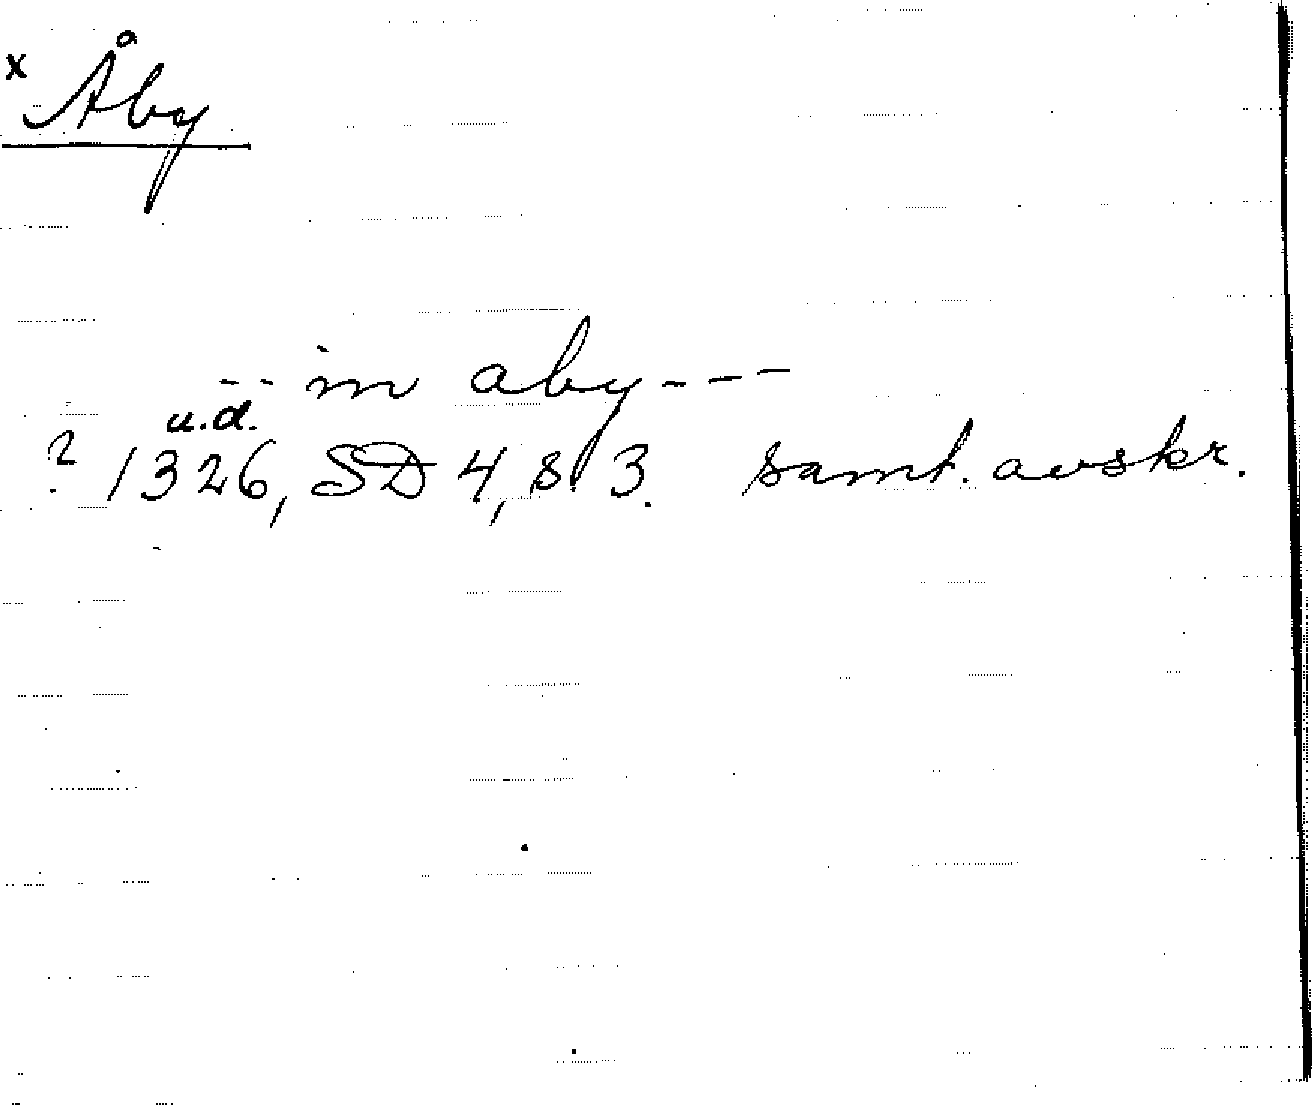 x Åby
-- in aby ---
u.d.
? 1326, SD 4, s. 3. samt. avskr.